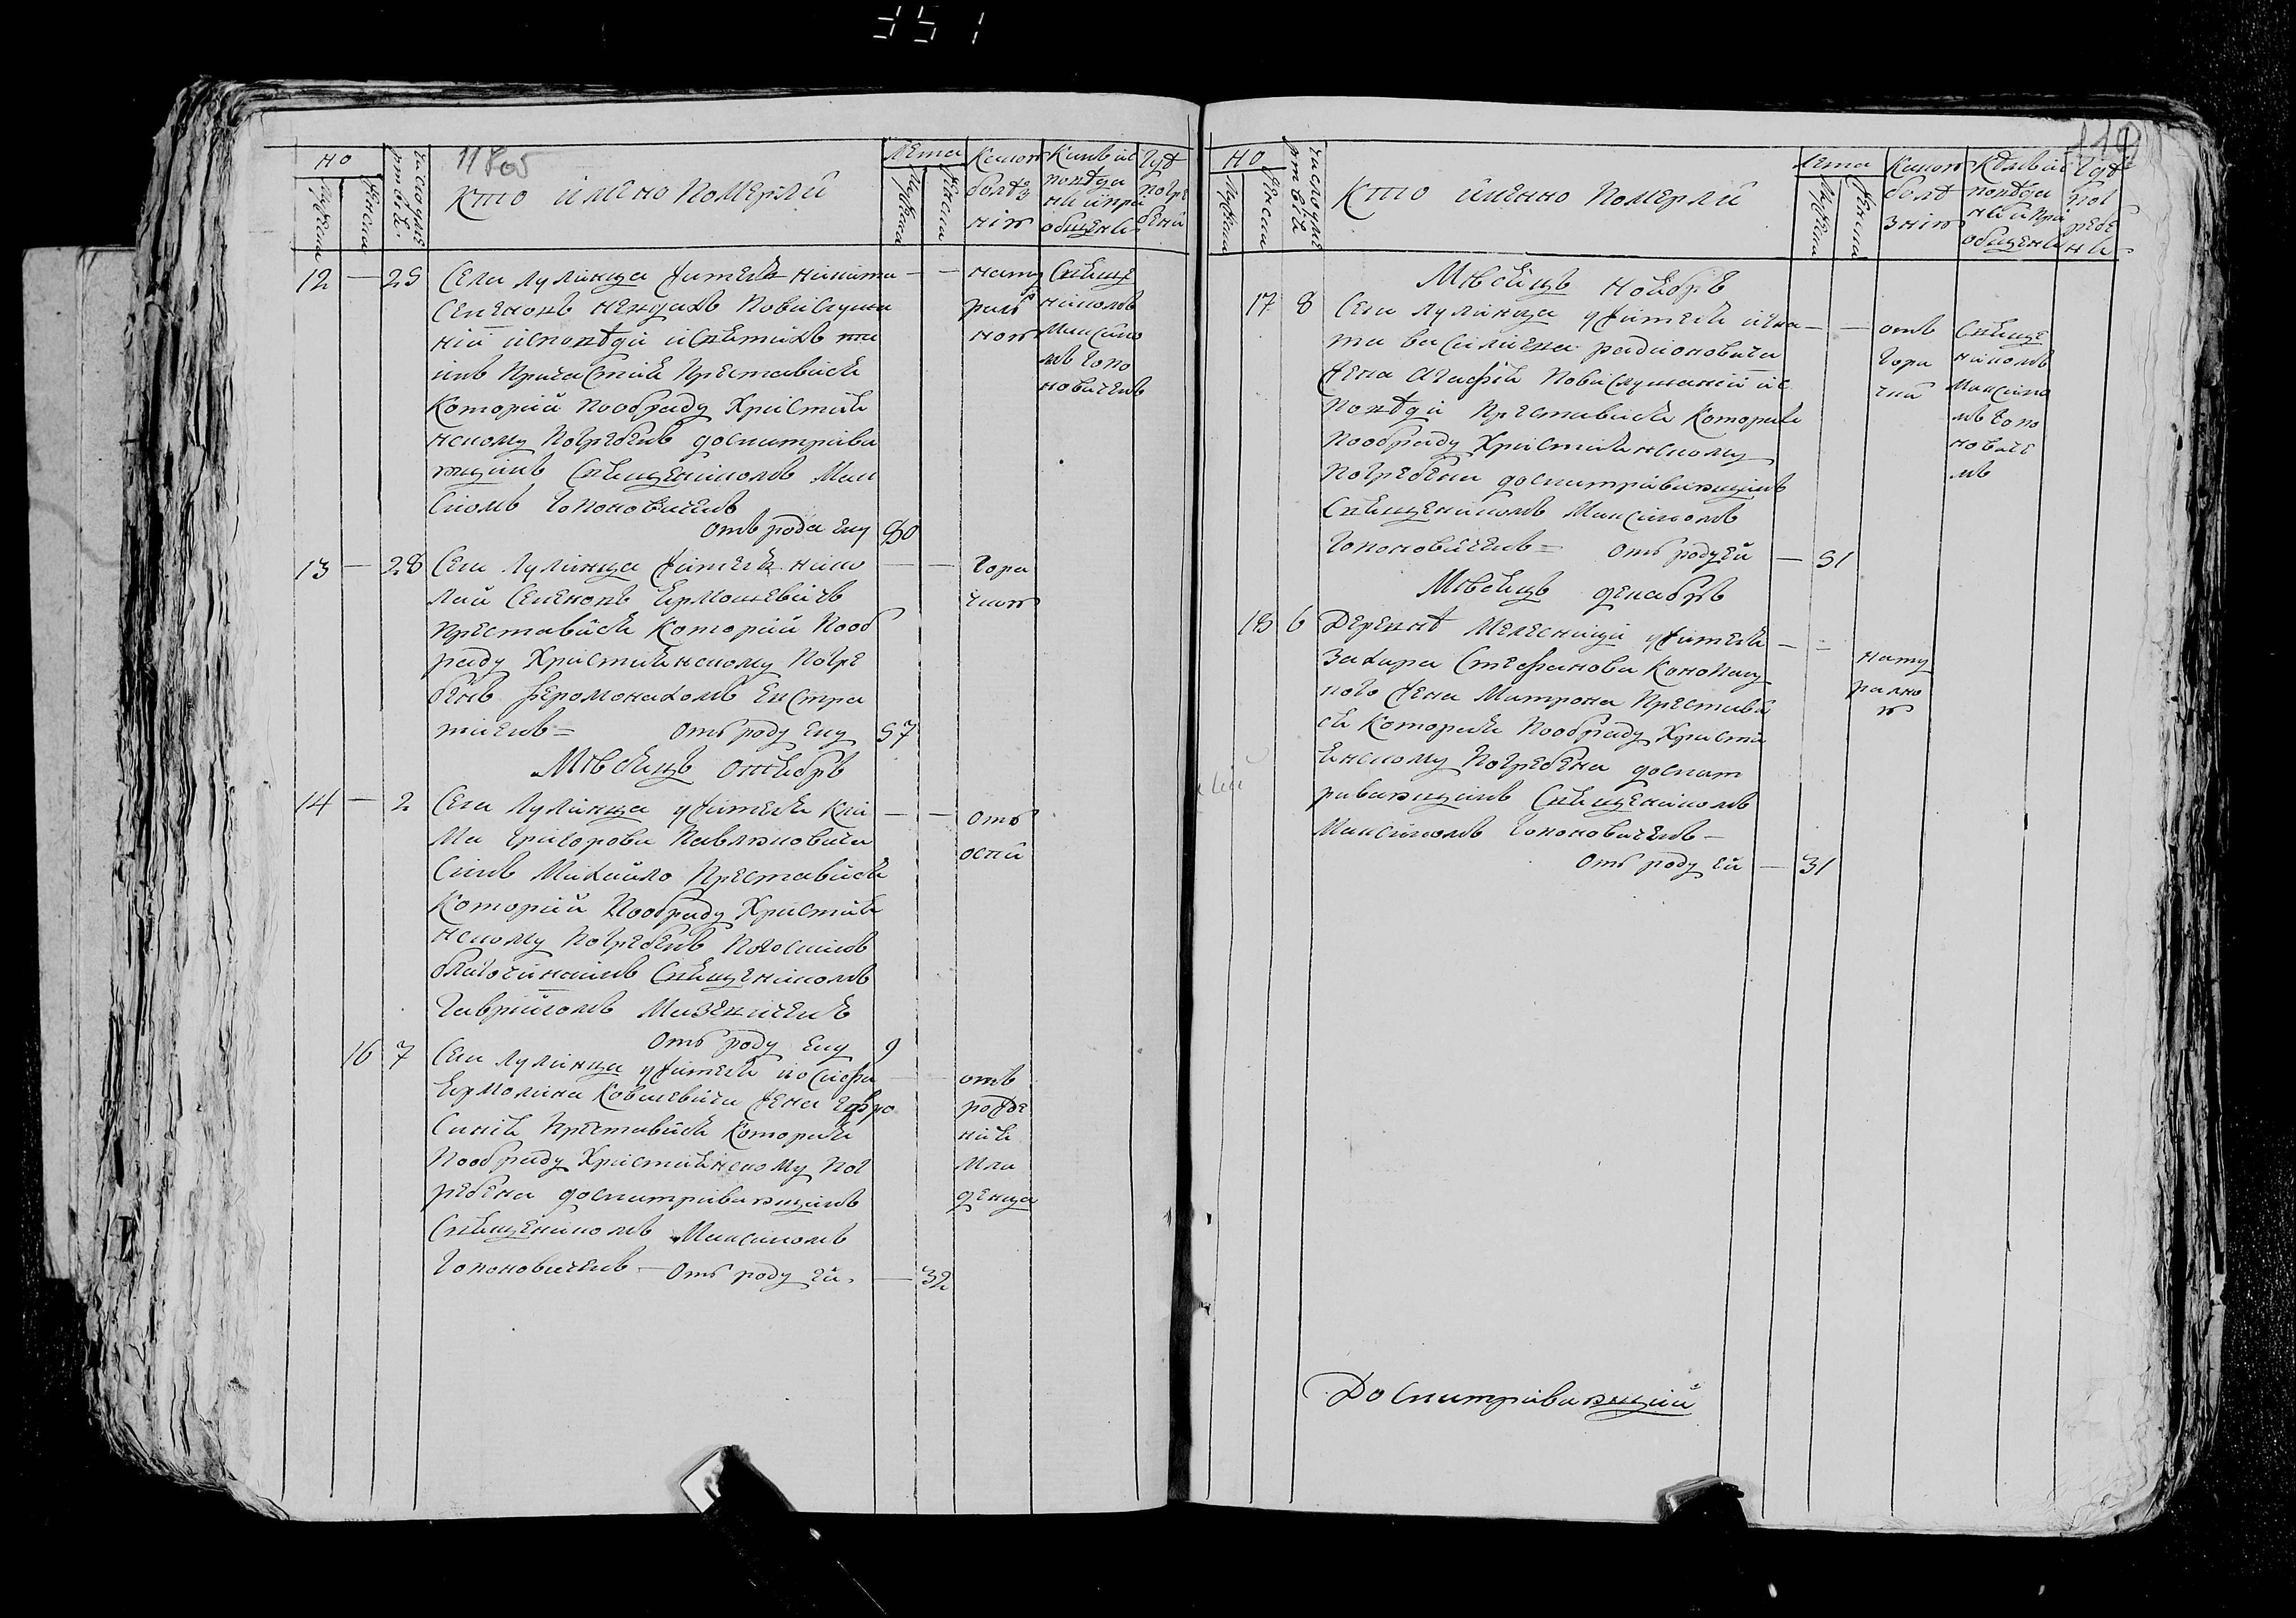 НО
Мужеска
Женска
число умертвія
Кто имено помѣрли
Лета
Мужеска
Женска
Какою болѣзнію
Кимъ исповѣдани и приобщени
Где погребени
12 — 25 Села Лулинца житель никита
Семеновъ по вислуша
ніи исповѣди и святихъ та
инъ причастия преставися
Которій по обряду Христия
нскому погребенъ досматрива
ющимъ Священикомъ Мак
симомъ Гопоновичемъ
отъ рода ему 80
нату
раль
ною
Свяще
никомъ
Максимо
мъ Гопо
новичемъ
13 — 28 Села Лулинца житель нико
лай Семеновъ Ермошевичъ
преставися Которій по об
ряду Християнскому погре
бенъ Іеромонахомъ Евстра
тиемъ = отъ роду ему 57
Гора
чкою
Мѣсяцъ Октябрь
14 — 2 Села Лулинца жителя Кли
ма Григорова Павлюковича
Синъ Михайло преставися
Которій по обряду Христия
нскому погребенъ
благочиннимъ Священикомъ
Гавриіломъ
отъ роду ему 9
отъ
оспи
16 7 Села Лулинца жителя иосифа
Ермолина Ковалевича жена Ефро
Синія преставися Которая
по обряду Християнскому пог
ребена досматривающимъ
Священикомъ Максимомъ
Гопоновичемъ — отъ роду ей — 32
отъ
рожде
нія
мла
денца
НО
Мужеска
Женска
число умертвія
Кто именно померли
Лета
Мужеска
Женска
Какою болѣзнію
Кемъ исповѣдани и приобщени
Где погребени
Мѣсяцъ Ноябрь
17 8 Села Лулинца жителя игна
та васильева радионовича
жена Агафія по вислушаніи ис
повѣди преставися Которая
по обряду Християнскому
погребена досматривающимъ
Священикомъ Максимомъ
Гопоновичемъ = отъ роду ей — 51
отъ
гора
чки
Свяще
никомъ
Максимо
мъ Гопо
новиче
мъ
Мѣсяцъ декабрь
18 6 Деревнѣ Мелесници жителя
Захара Стефанова
жена Матрона преставя
ся Которая по обряду Христи
янскому погребена досмат
ривающимъ Священикомъ
Максимомъ Гопоновичемъ —
отъ роду ей — 31
нату
рално
ю
Досматривающій